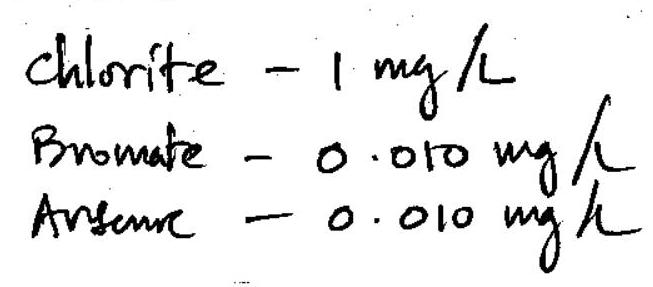 Chlorite - 1 mg/L
Bromate - 0.010 mg/L
Arsenic - 0.010 mg/L